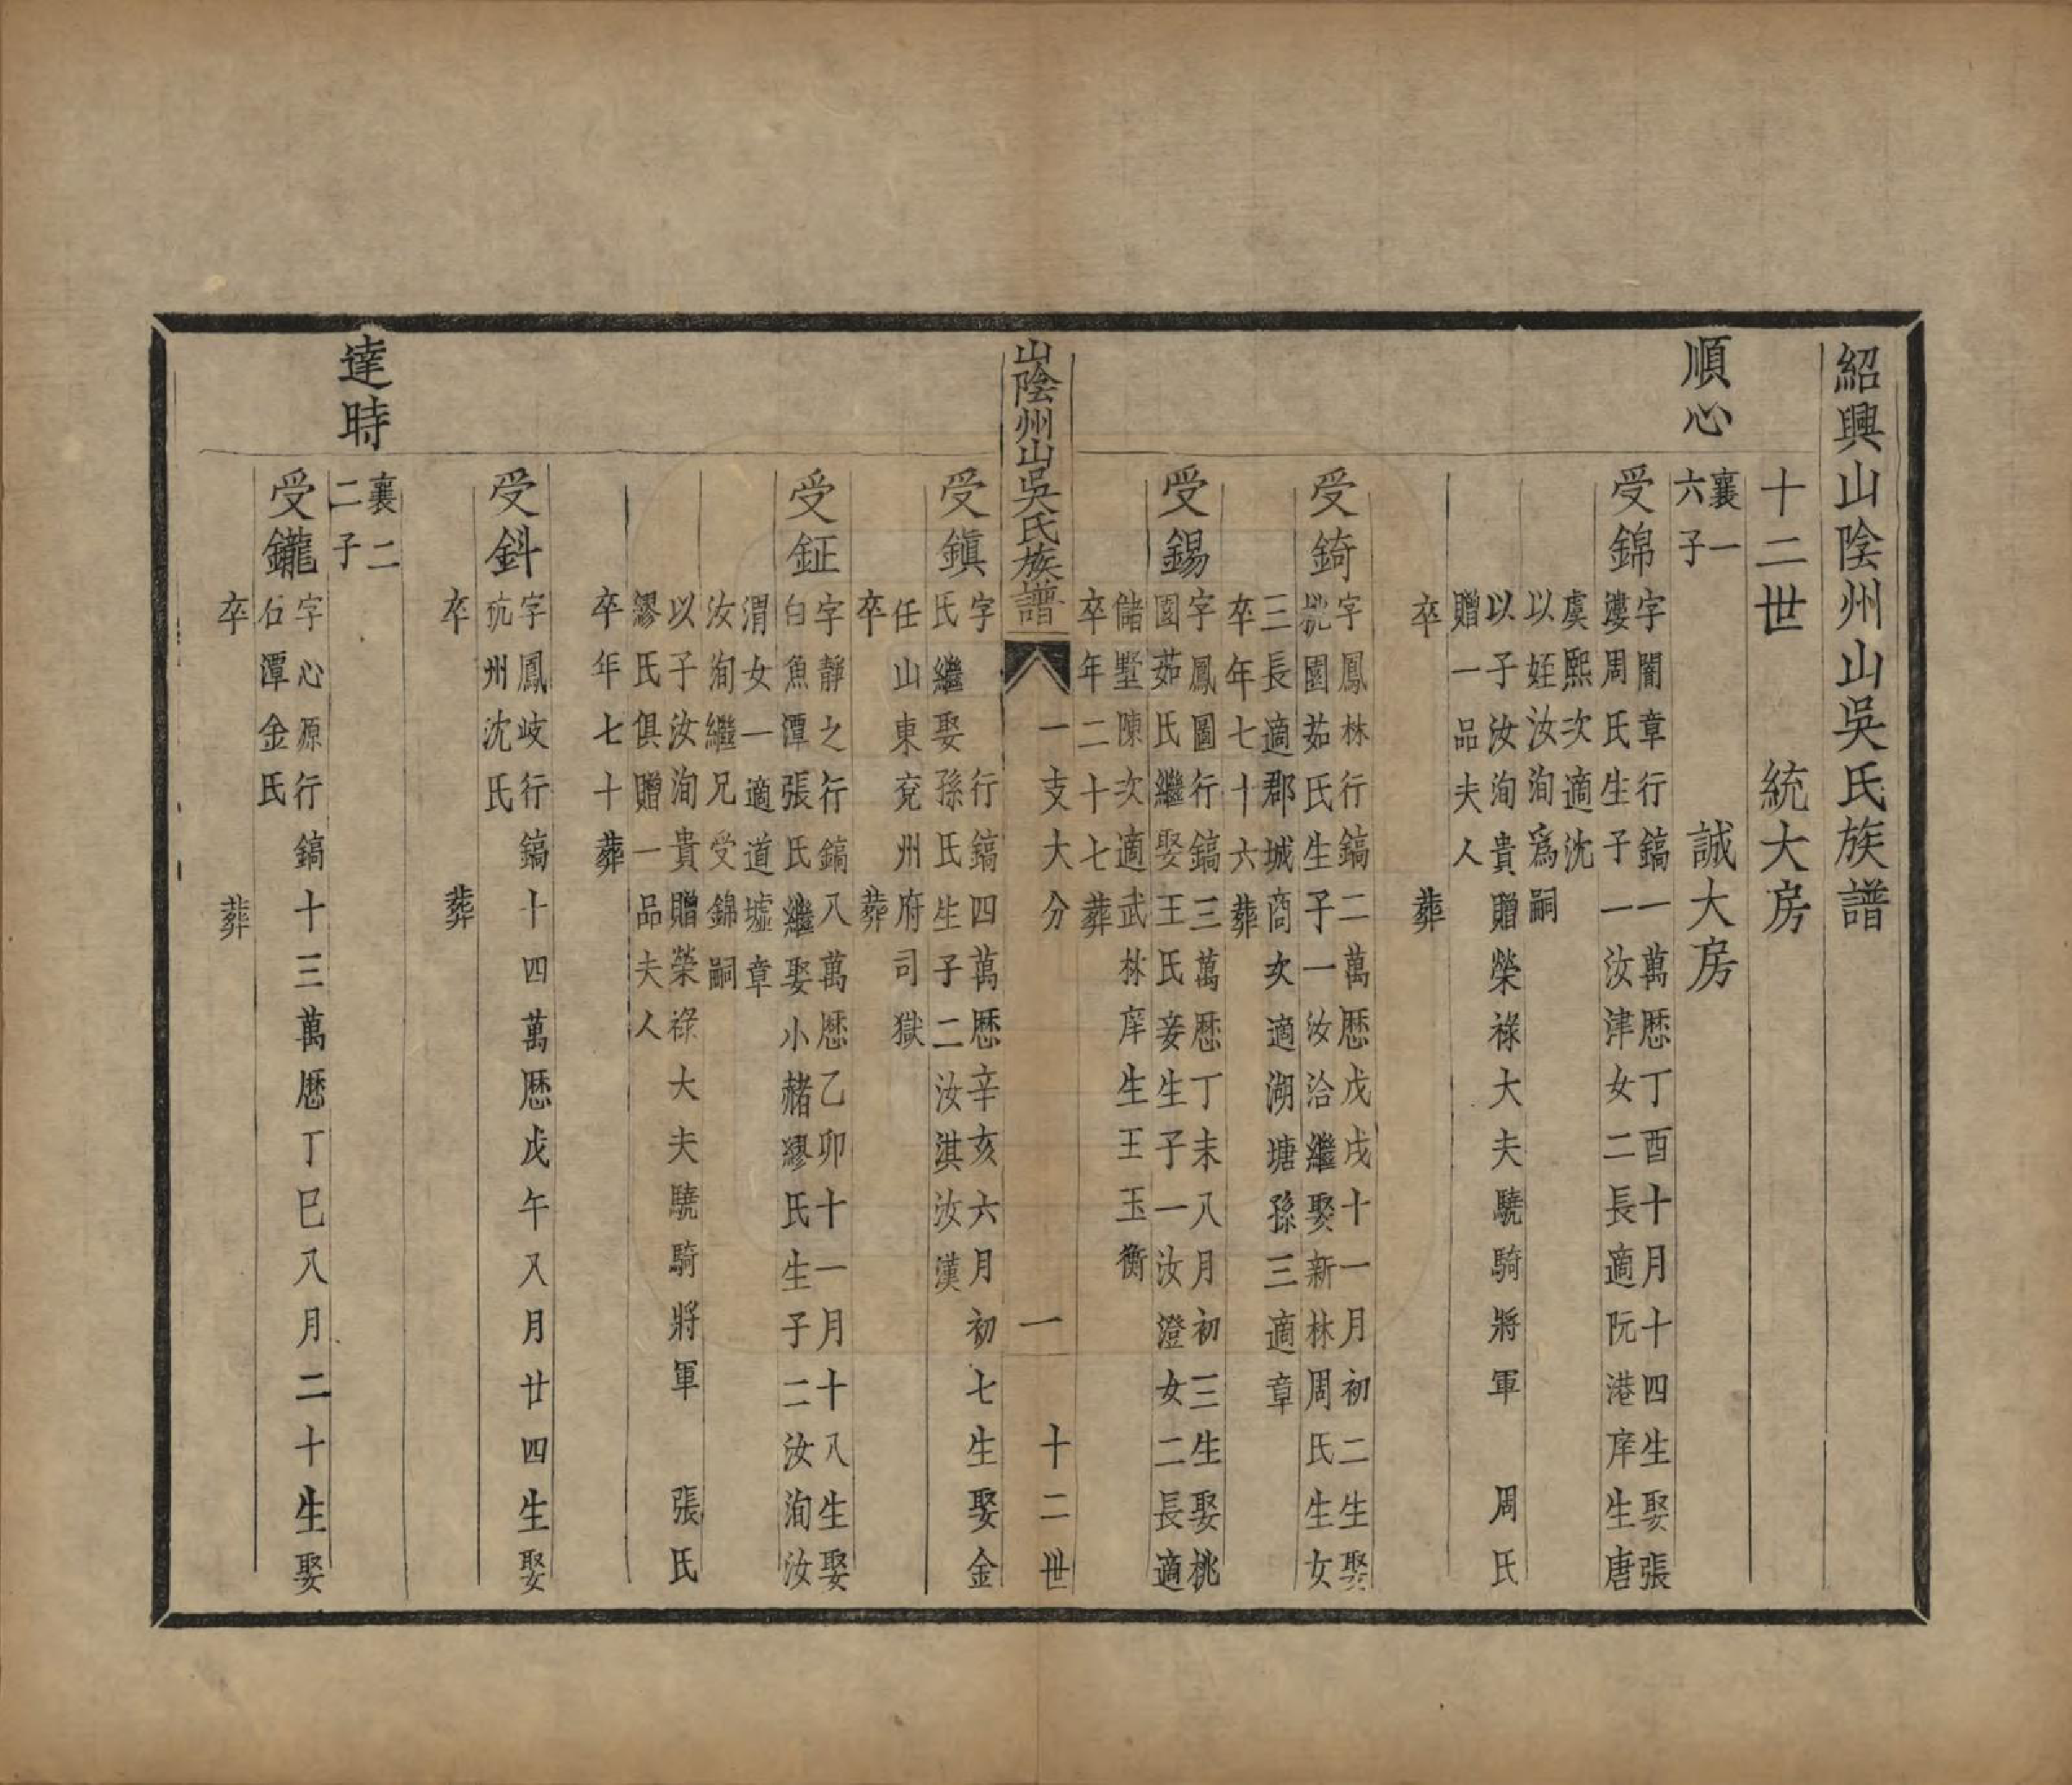 紹興山陰州山吳氏族譜
十二世　統大房
誠大房
順心
襄一
六子
受錦
字闇章行鎬一萬歷丁酉十月十四生娶張
漊周氏生子一汝津女二長適阮港庠生唐
虞熙次適沈
以姪汝洵爲嗣
以子汝洵貴贈榮祿大夫驍騎將軍　周氏
贈一品夫人
卒　葬
受錡
字鳳林行鎬二萬歷戊戌十一月初二生娶
園茹氏生子一汝洽繼娶新林周氏生女
三長適郡城商次適湖塘孫三適章
卒年七十六葬
受錫
字鳳圖行鎬三萬歷丁未八月初三生娶桃
園茹氏繼娶王氏妾生子一汝澄女二長適
儲墅陳次適武林庠生王玉衡
卒年二十七葬
山陰州山吳氏族譜
一支大分　一　十二世
受鎮
字　行鎬四萬歷辛亥六月初七生娶金
氏繼娶孫氏生子二汝淇汝漢
任山東兗州府司獄
卒　葬
受鉦
字靜之行鎬八萬歷乙卯十一月十八生娶
白魚潭張氏繼娶小赭繆氏生子二汝洵汝
渭女一適道墟章
汝洵繼兄受錦嗣
以子汝洵貴贈榮祿大夫驍騎將軍　張氏
繆氏俱贈一品夫人
卒年七十葬
受鈄
字鳳岐行鎬十四萬歷戊午八月廿四生娶
杭州沈氏
卒　葬
達時
襄二
二子
受鑨
字心源行鎬十三萬歷丁巳八月二十生娶
石潭金氏
卒　葬